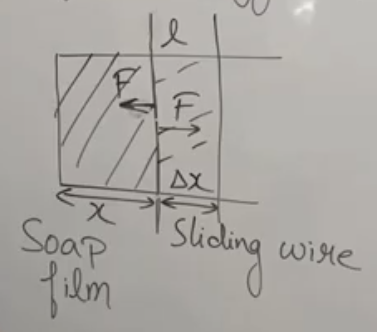 l
F
F
Δx
x
Soap film
Sliding wire